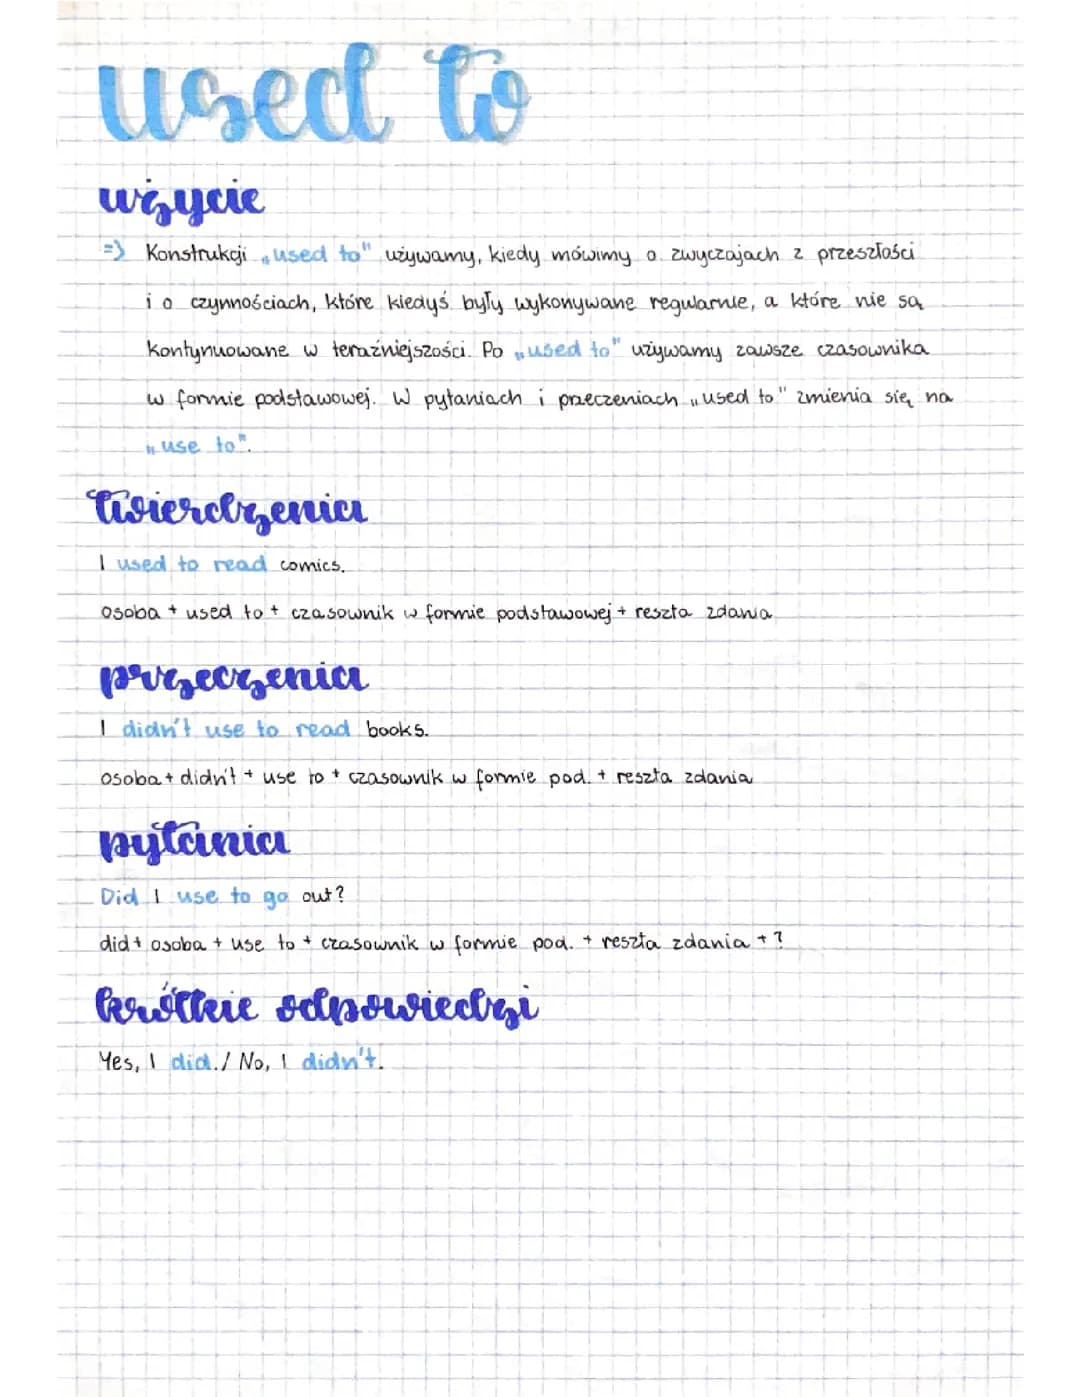 used to
użycie
=> Konstrukcji „used to" używamy, kiedy mówimy o zwyczajach z przeszłości
i o czynnościach, które kiedyś były wykonywane regularnie, a które nie są
kontynuowane w teraźniejszości. Po „used to" używamy zawsze czasownika
w formie podstawowej. W pytaniach i przeczeniach „used to" zmienia się na
„use to".
twierdzenia
I used to read comics.
osoba + used to + czasownik w formie podstawowej + reszta zdania
przeczenia
I didn't use to read books.
osoba + didn't + use to + czasownik w formie pod. + reszta zdania
pytania
Did I use to go out?
did + osoba + use to + czasownik w formie pod. + reszta zdania + ?
krótkie odpowiedzi
Yes, I did. / No, I didn't.